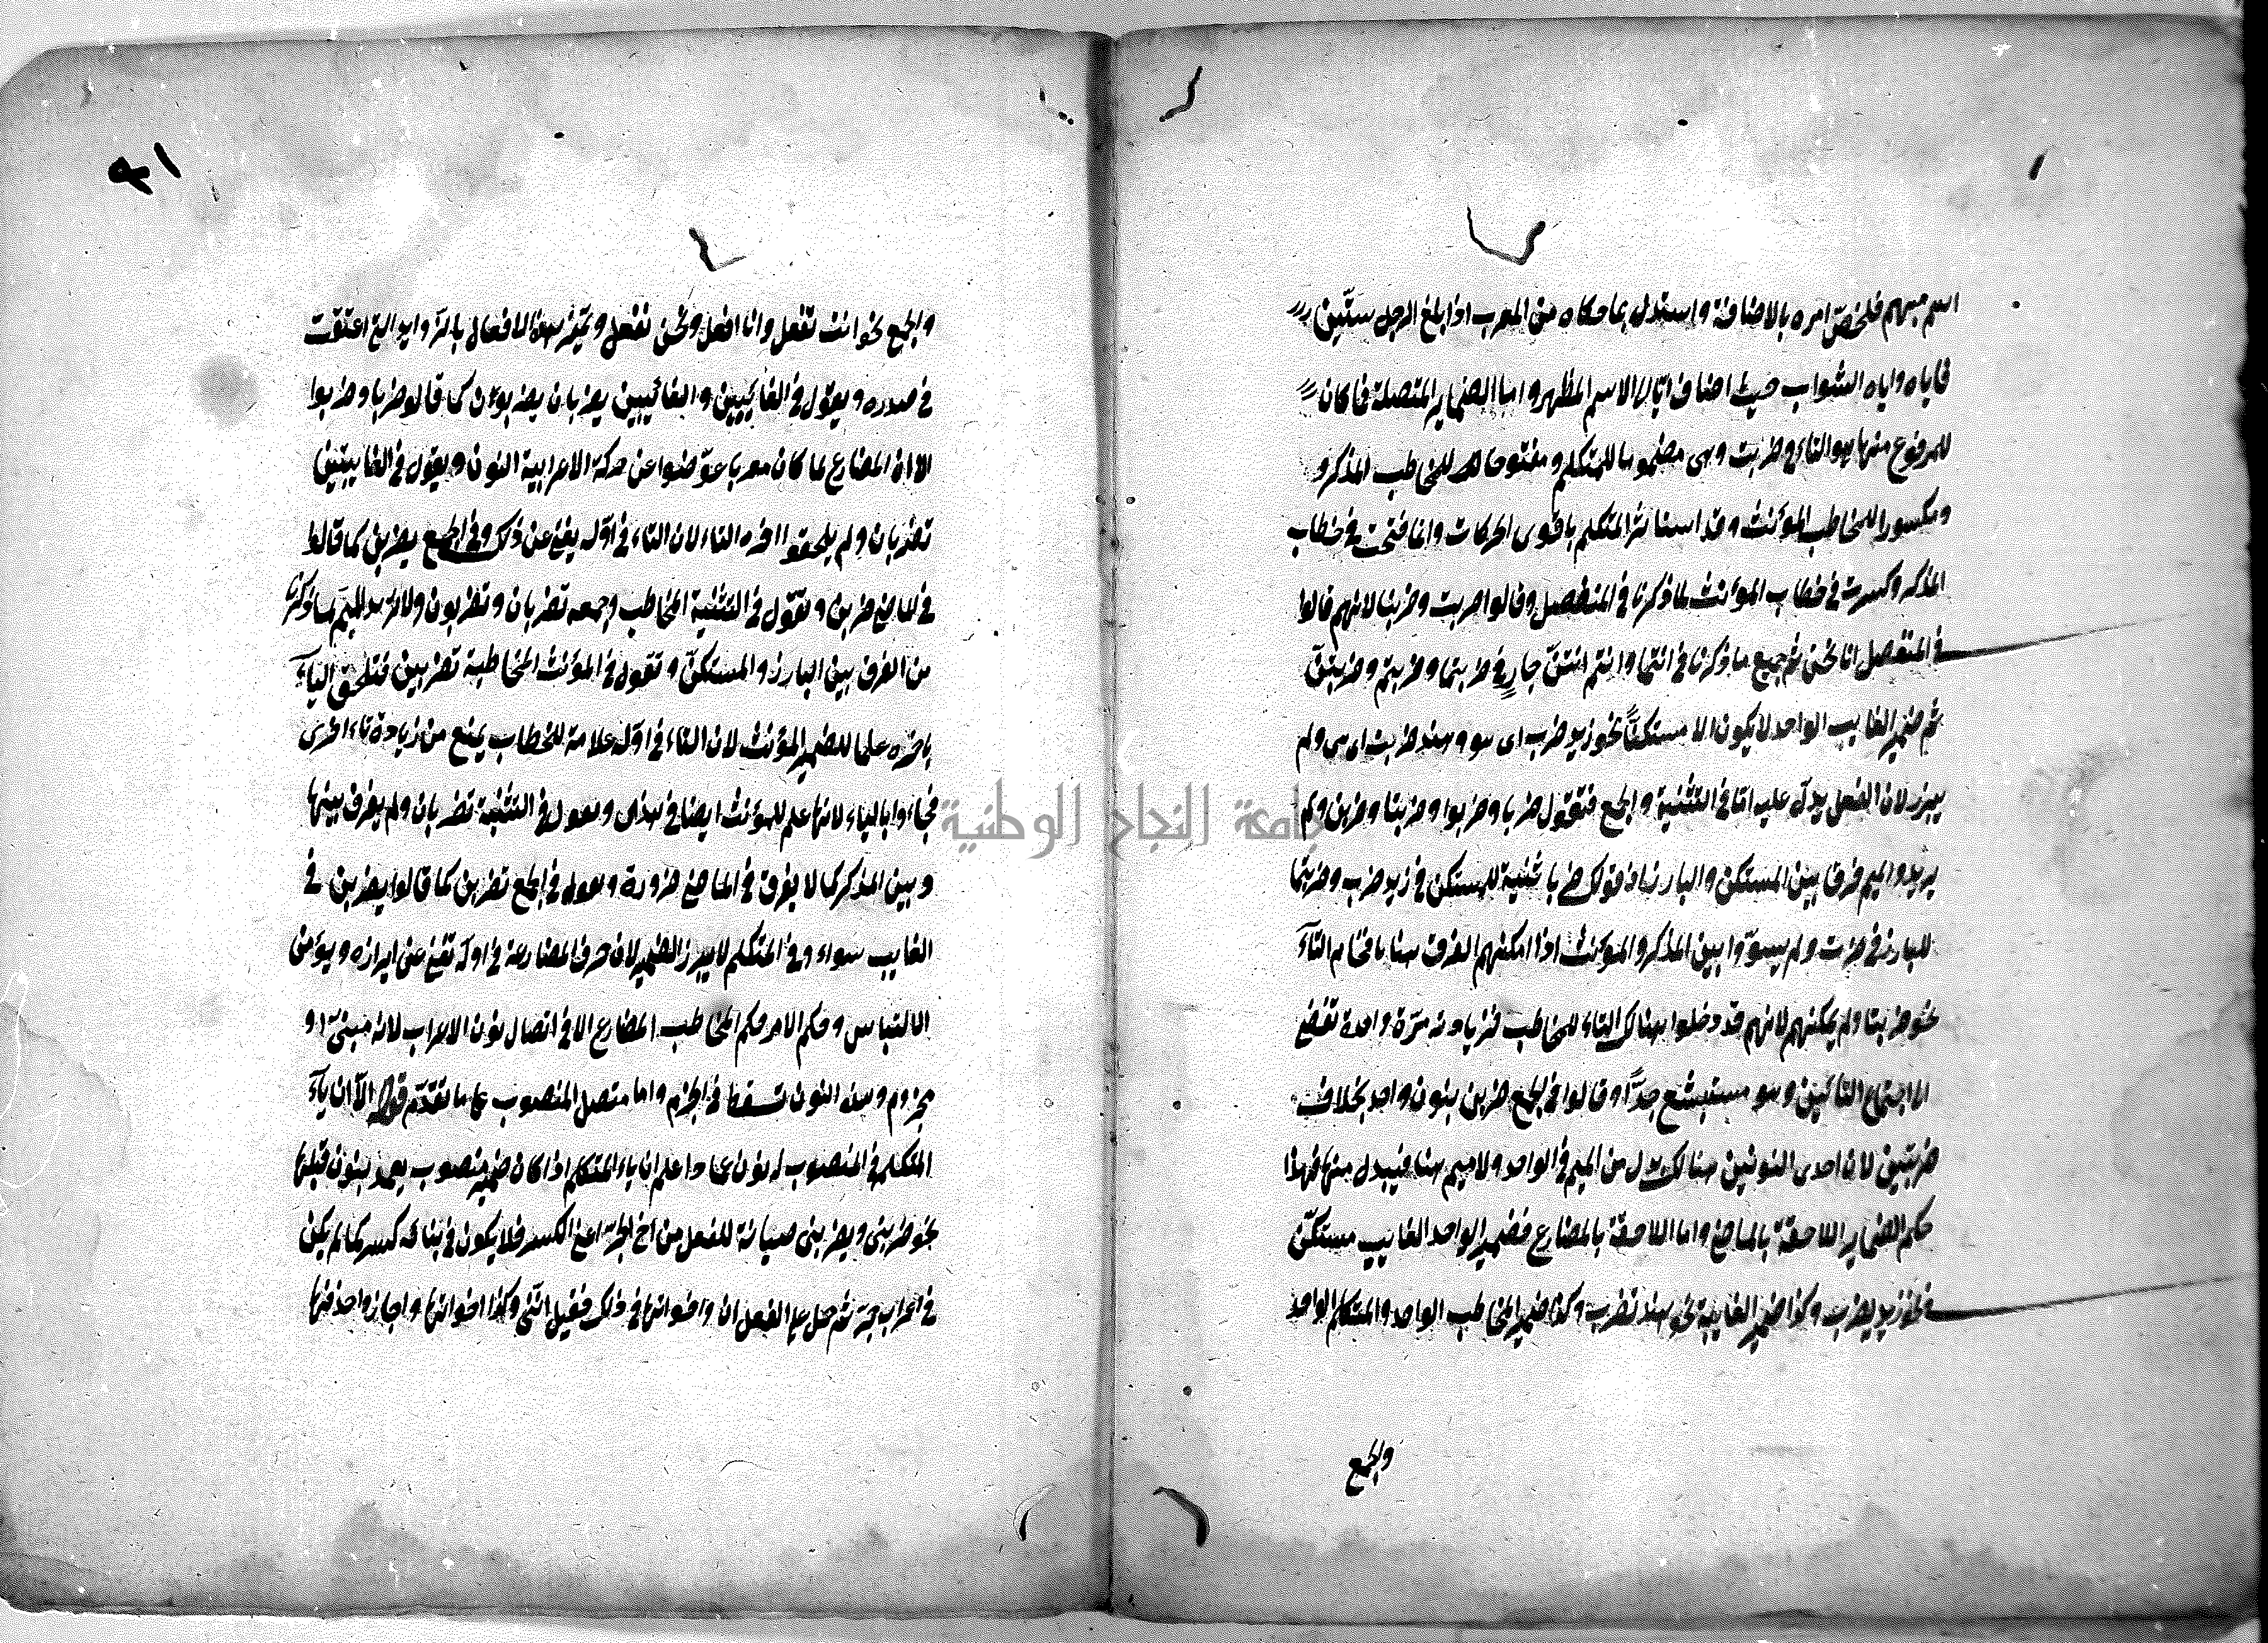 اسم مبهم فلخص امره بالاضافة واستدل بما حكاه من العرب اذا بلغ الرجل ستين
فاياه وايا الشواب حيث اضاف ايا الى الاسم المظهر واما الضماير المتصلة فما كان
للمرفوع منها هو التاء في ضربت وهي مضموما للمتكلم ومفتوحا للمخاطب المذكر و
ومكسورا للمخاطب المؤنث وقد استاثر المتكلم باقوى الحركات وانما فتحت في خطاب
المذكر وكسرت في خطاب المؤنث لما ذكرنا في المنفصل وقالوا ضربت وضربنا لانهم قالوا
في المنفصل انا نحن ثم جميع ما ذكرنا في انتما وانتم انتن جار في ضربتما وضربتم وضربتن
ثم ضمير الغايب الواحد لا يكون الا مستكنا نحو زيد ضرب اى هو وهند ضربت اى هى ولم
يبرز لان الفعل يدل عليه اما في التثنية والجمع فتقول ضربا وضربوا وضربتا وضربن ولم
يزيدوا الميم فرقا بين المستكن والبارز اذ قولك ضربا تثنية للمستكن في زيد ضرب وضربتما
للبارز في ضربت ولم يسووا بين المذكر والمؤنث اذا امكنهم الفرق هنا بافخام التاء
نحو ضربتا ولم يمكنهم لانهم قد دخلوا هنالك التاء للمخاطب فزيادته مرة واحدة تفضى
الى اجتماع التائين وهو مستبشع جدا وقالوا في الجمع ضربن بنون واحد بخلاف
ضربتن لان احدى النونين هنالك بدل من الميم في الواحد ولا ميم هنا فيبدل منها فهذا
حكم الضماير اللاحقة بالماضي واما اللاحقة بالمضارع فضمير الواحد الغايب مستكن
نحو زيد يضرب وكذا ضمير الغايبة نحو هند تضرب وكذا ضمير المخاطب الواحد والمتكلم الواحد
والجمع
٩١
والجمع نحو انت تفعل وانا افعل ونحن نفعل ويتميز هذه الافعال بالزوايد التي اعتقبت
في صدره ويقول في الغائبين والغائبين يضربان يضربون كما قالوا ضربا وضربوا
الا ان المضارع لما كان معربا عوضوا عن حركة الاعرابية النون ويقول في الغايبتين
تضربان ولم يلحقوا اخره التاء لان التاء في اوله يغني عن ذلك وفي الجمع يضربن كما قالوا
في الماضي ضربن وتقول في التثنية المخاطب وجمعه تضربان وتضربون ولا تزيد الميم لما ذكرنا
من الفرق بين البارز والمستكن وتقول في المؤنث المخاطبة تضربين فتلحق الياء
باخره علما للضمير المؤنث لان التاء في اوله علامة للخطاب يمنع من زيادة تاء اخرى
فجاءوا بالياء لانها علم للمؤنث ايضا في هذى ويقول في التثنية تضربان ولم يفرق بينها
وبين المذكر كما لا يفرق في الماضي ضرورة ويقول في الجمع تضربن كما قالوا يضربن في
الغايب سواء وفي المتكلم لا يبرز الضمير لان حرف المضارعة في اوله تغني عن ابرازه ويؤمن
الالتباس وحكم الامر حكم المخاطب المضارع الا في اتصال نون الاعراب لانه مبنى او
مجزوم وهذه النون تسقط في الجزم واما متصل المنصوب على ما تقدم قوله الا ان ياء
المتكلم في المنصوب له نون عماد اعلم ان ياء المتكلم اذا كان ضمير منصوب يعمد بنون قبلها
نحو ضربنى ويضربنى صيانة للفعل من اخ الجر اعني الكسر فلا يكون في بنائه كسر كما لم يكن
في اعرابه جر ثم حمل على الفعل ان واخواتها في ذلك فقيل انني وكذا اخواتها واجاز واحذفها
جامعة النجاح الوطنية